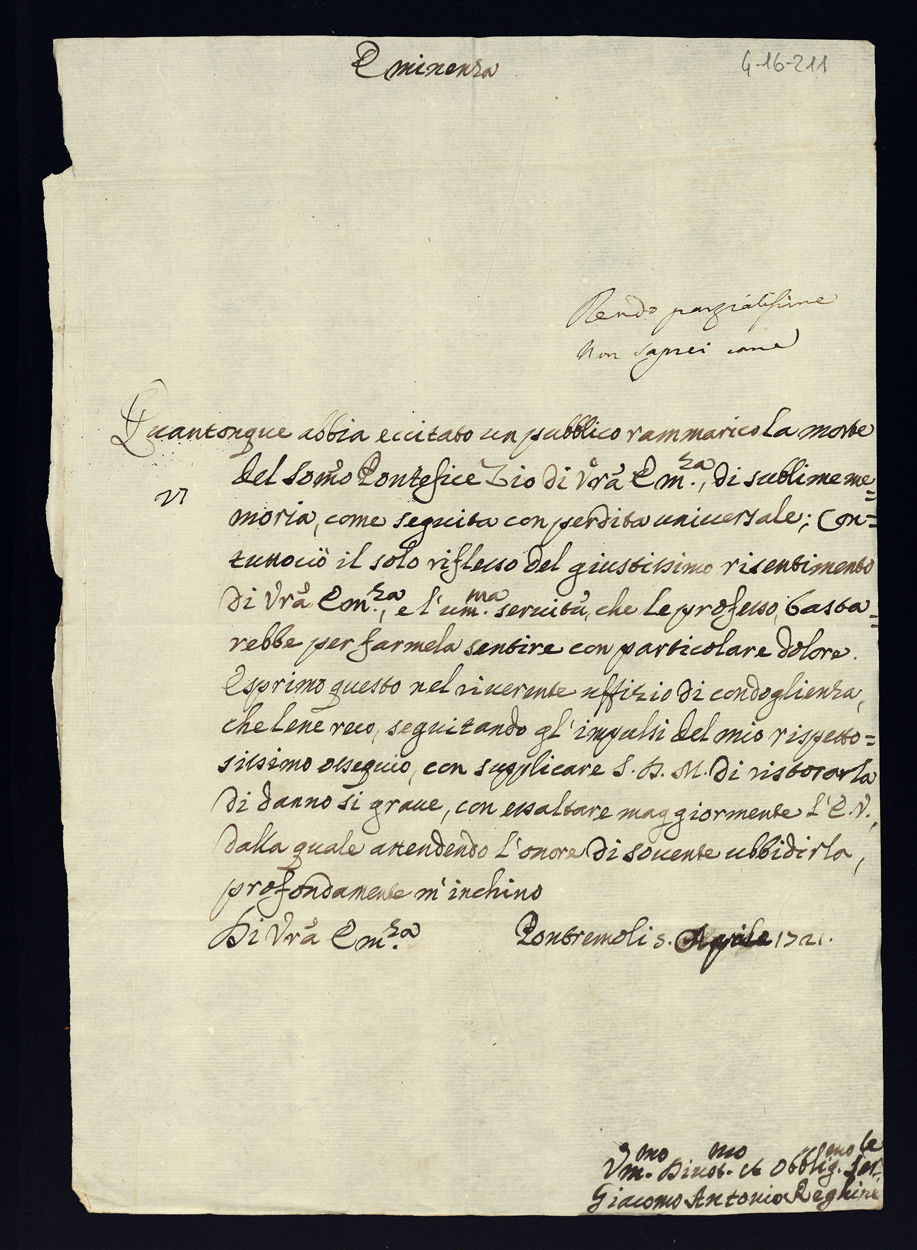 Eminenza
4-16-211
Rendo parzialissime
Non saprei come
Quantonque abbia eccitato un pubblico rammarico la morte
del Som̃o Pontefice Zio di Vrã Em.za, di sublime me=
moria, come seguita con perdita universale; Con=
tuttociò il solo riflesso del giustissimo risentimento
di Vrã Em.za, e l'um.ma servitù, che le professo, basta=
rebbe per farmela sentire con particolare dolore.
Esprimo questo nel riverente uffizio di condoglienza,
che lene reco, seguitando gl'impulsi del mio rispetto=
sissimo ossequio, con supplicare S. D. M. di ristorarla
di danno si grave, con essaltare maggiormente l'E.V.,
dalla quale attendendo l'onore di sovente ubbidirla,
profondamente m'inchino
Di Vrã Em.za Pontremoli 5. Aprile 1721.
Vm.mo Divot.mo et Obblig.mo Ser.le
Giacomo Antonio Reghini